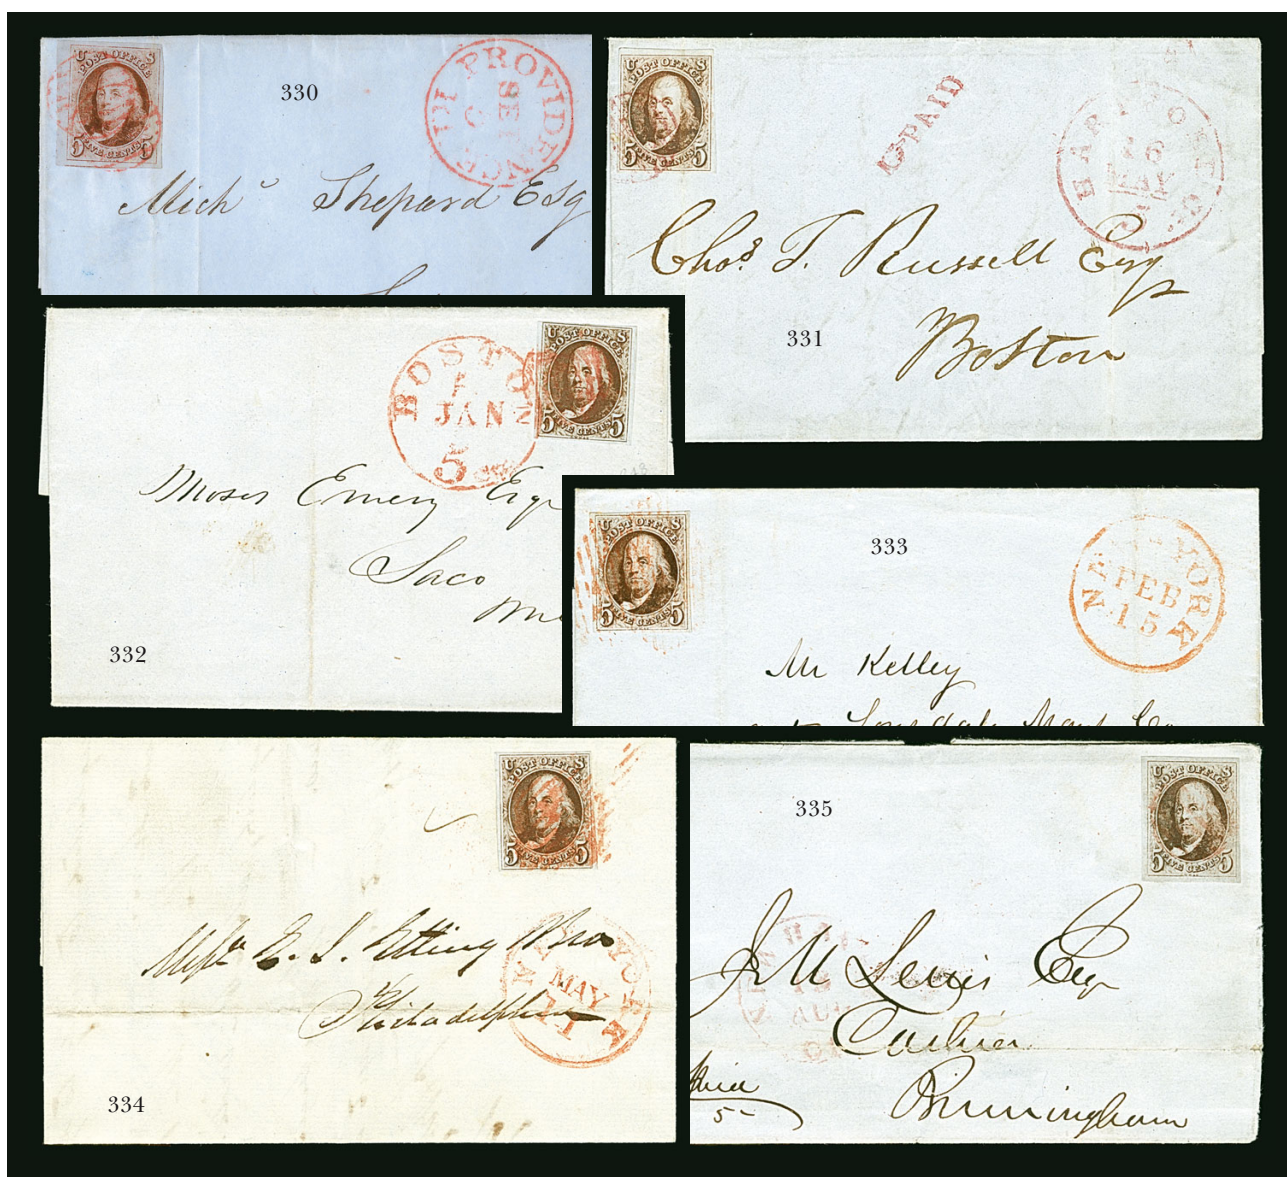 U S
POST OFFICE
5 FIVE CENTS 5
330
PROVIDENCE
SEP
Mich Shepard Esq
U S
POST OFFICE
5 FIVE CENTS 5
PAID
28
MAY
Chas. T. Russell Esq
Boston
331
BOSTON
JAN
5 cts
U S
POST OFFICE
5 FIVE CENTS 5
Moses Emery Esq
Saco
Me
332
U S
POST OFFICE
5 FIVE CENTS 5
333
NEW-YORK
FEB
15
Mr Kelley
U S
POST OFFICE
5 FIVE CENTS 5
NEW YORK
MAY
11
Philadelphia
334
335
U S
POST OFFICE
5 FIVE CENTS 5
AUG
J M Lewis Esq
Cashier
Birmingham
5